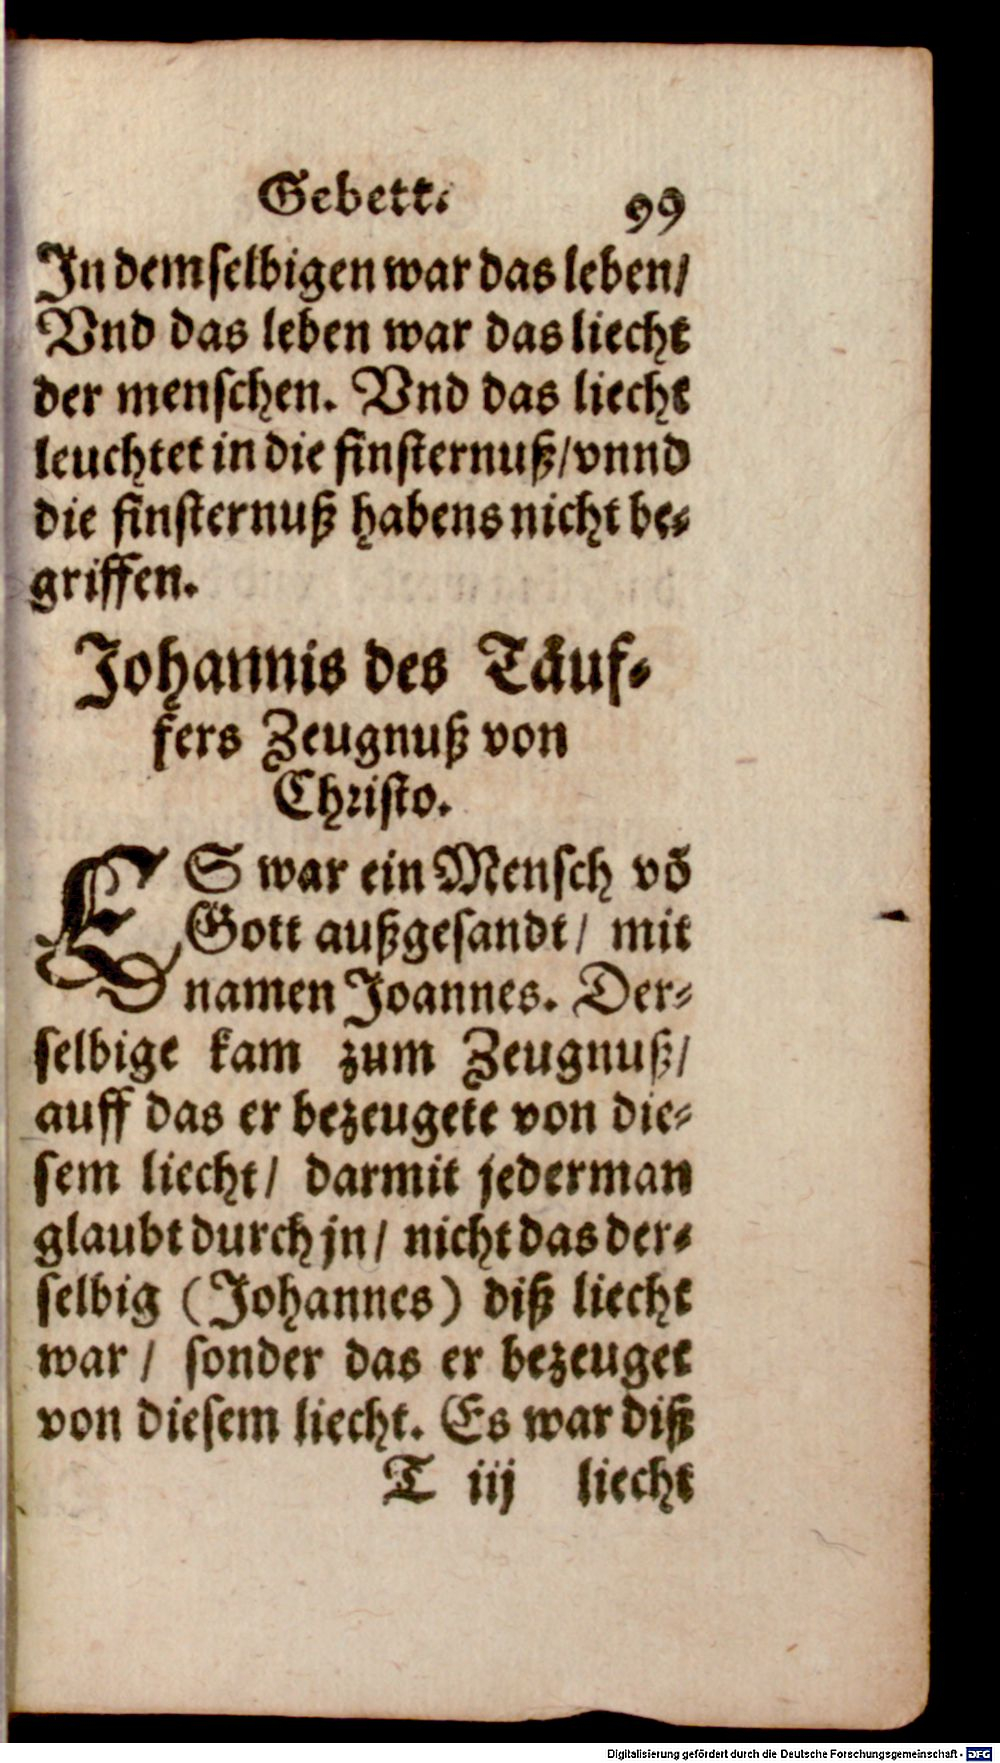 Gebett. 99
In demselbigen war das leben/
Vnd das leben war das liecht
der menschen. Vnd das liecht
leuchtet in die finsternuß/vnnd
die finsternuß habens nicht be-
griffen.
Johannis des Täuf-
fers Zeugnuß von
Christo.
ES war ein Mensch võ
Gott außgesandt/ mit
namen Joannes. Der-
selbige kam zum Zeugnuß/
auff das er bezeugete von die-
sem liecht/ darmit jederman
glaubt durch jn/ nicht das der-
selbig (Johannes) diß liecht
war/ sonder das er bezeuget
von diesem liecht. Es war diß
T iij liecht
Digitalisierung gefördert durch die Deutsche Forschungsgemeinschaft - DFG